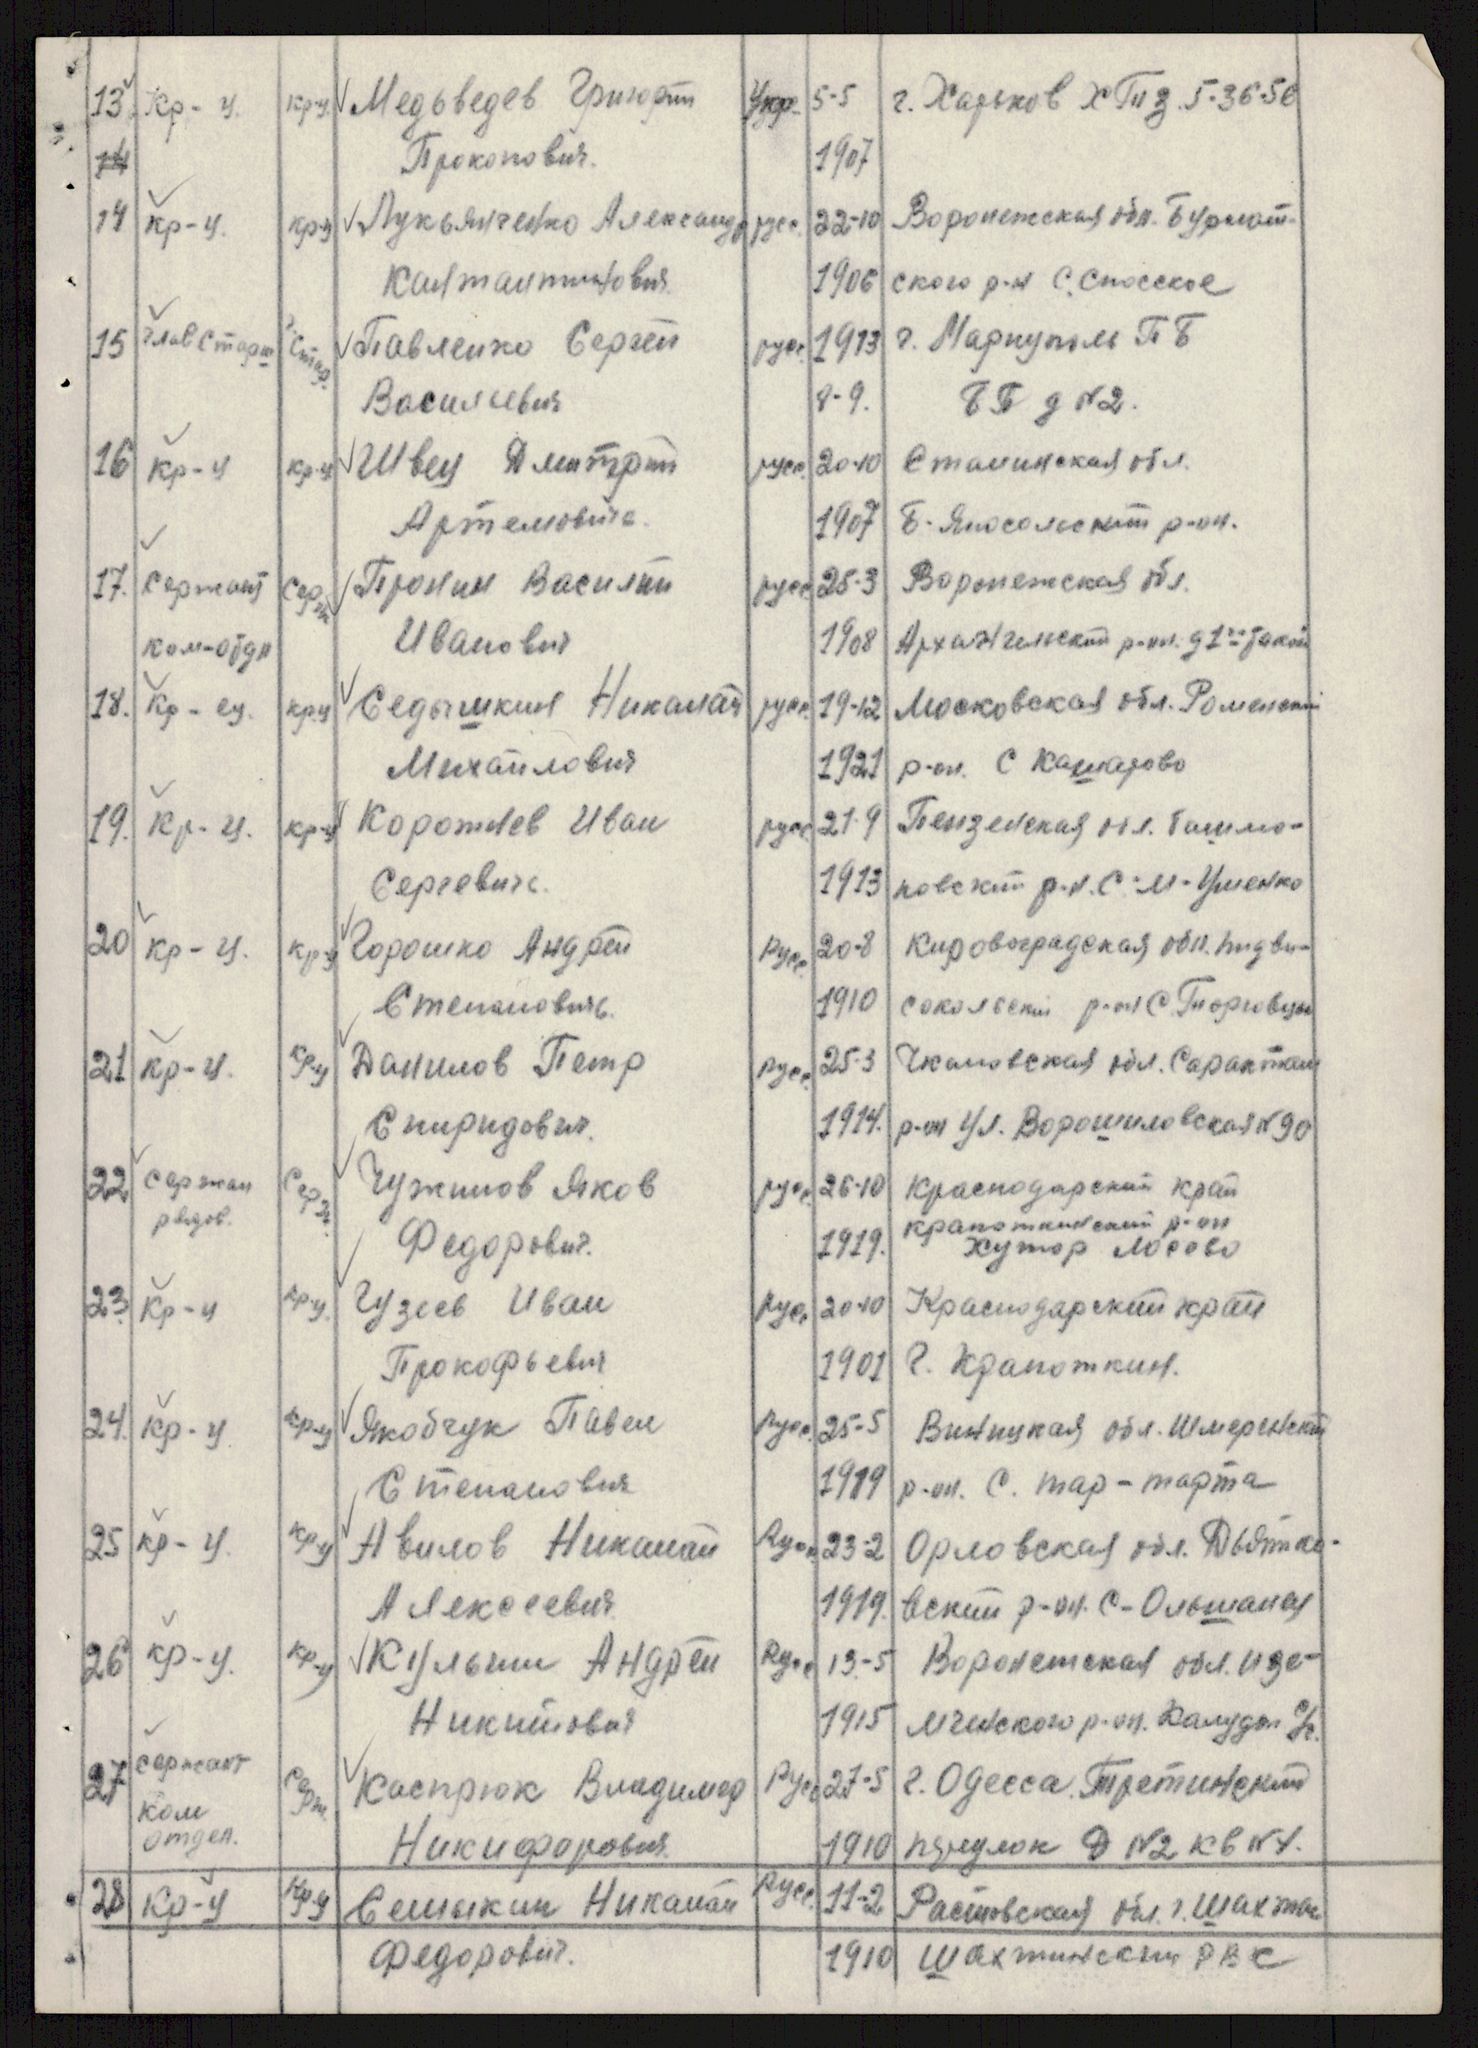 13 Кр-ц. кр-ц Медьведев Григорий Укр. 5-5 г. Харьков ХТПЗ. 5-36-56
14 Прокопович. 1907
14 кр-ц. кр-ц Лукьянченко Александр русс. 22-10 Воронежская обл.
Канстантинович 1906 ского р-н С. Спосское
15 глав Старш г.Стар. Павленко Сергей русс. 1913 г. Мариуполь П Б
Васильевич 8-9. Б Б д №2.
16 кр-ц кр-ц Швец Дмитрий русс. 20-10 Сталинская обл.
Артемович. 1907 Б-Яносольский р-он.
17. Сержант Серж Пронин Василий русс 25-3 Воронежская обл.
ком-отдл Иванович 1908 Архангельский р-он.
18. Кр-ец. кр-ц Седышкин Николай русс. 19-12 Московская обл. Раменский
Михайлович 1921 р-он. С Кашарово
19. Кр-ц. кр-ц Корожнев Иван русс 21-9 Пензенская обл. башма-
Сергеевич. 1913 ковский р-н. С-М-Уменко
20 кр-ц. кр-ц Горошко Андрей Русс. 20-8 Кировоградская обл. подви-
Степанович. 1910 сокольский р-он С Торговцы
21 кр-ц. кр-ц Данилов Петр Русс. 25-3 Чкаловская обл. Саракташ
Спиридович. 1914. р-он Ул. Ворошиловская №90
22. Сержан Серж. Чужинов Яков русс. 26-10 Краснодарский край
рядов. Федорович. 1919. крапоткинский р-он
хутор Лосево
23. Кр-ц кр-ц. Гузеев Иван Русс 20-10 Краснодарский край
Прокофьевич 1901 г. Крапоткин.
24. кр-ц кр-ц Якобчук Павел Русс. 25-5 Виницкая обл. Шмеринский
Степанович 1919 р-он. С. тар-тарта
25 кр-ц. кр-ц Авилов Николай Русс 23-2 Орловская обл. Дьятко-
Алексеевич 1919. вский р-он. С-Ольшаная
26 кр-ц. кр-ц Кульшин Андрей Русс 13-5 Воронежская обл.
Никитович 1915 р-он.
27 Сержант Серж. Каспрюк Владимер Русс 27-5 г. Одесса. Третинский
ком
отдел. Никифорович. 1910 переулок Д №2 кв №1.
28 Кр-ц Кр-ц Семыкин Николай Русс. 11-2 Растовская обл. г. Шахты
Федорович. 1910 Шахтинский РВК